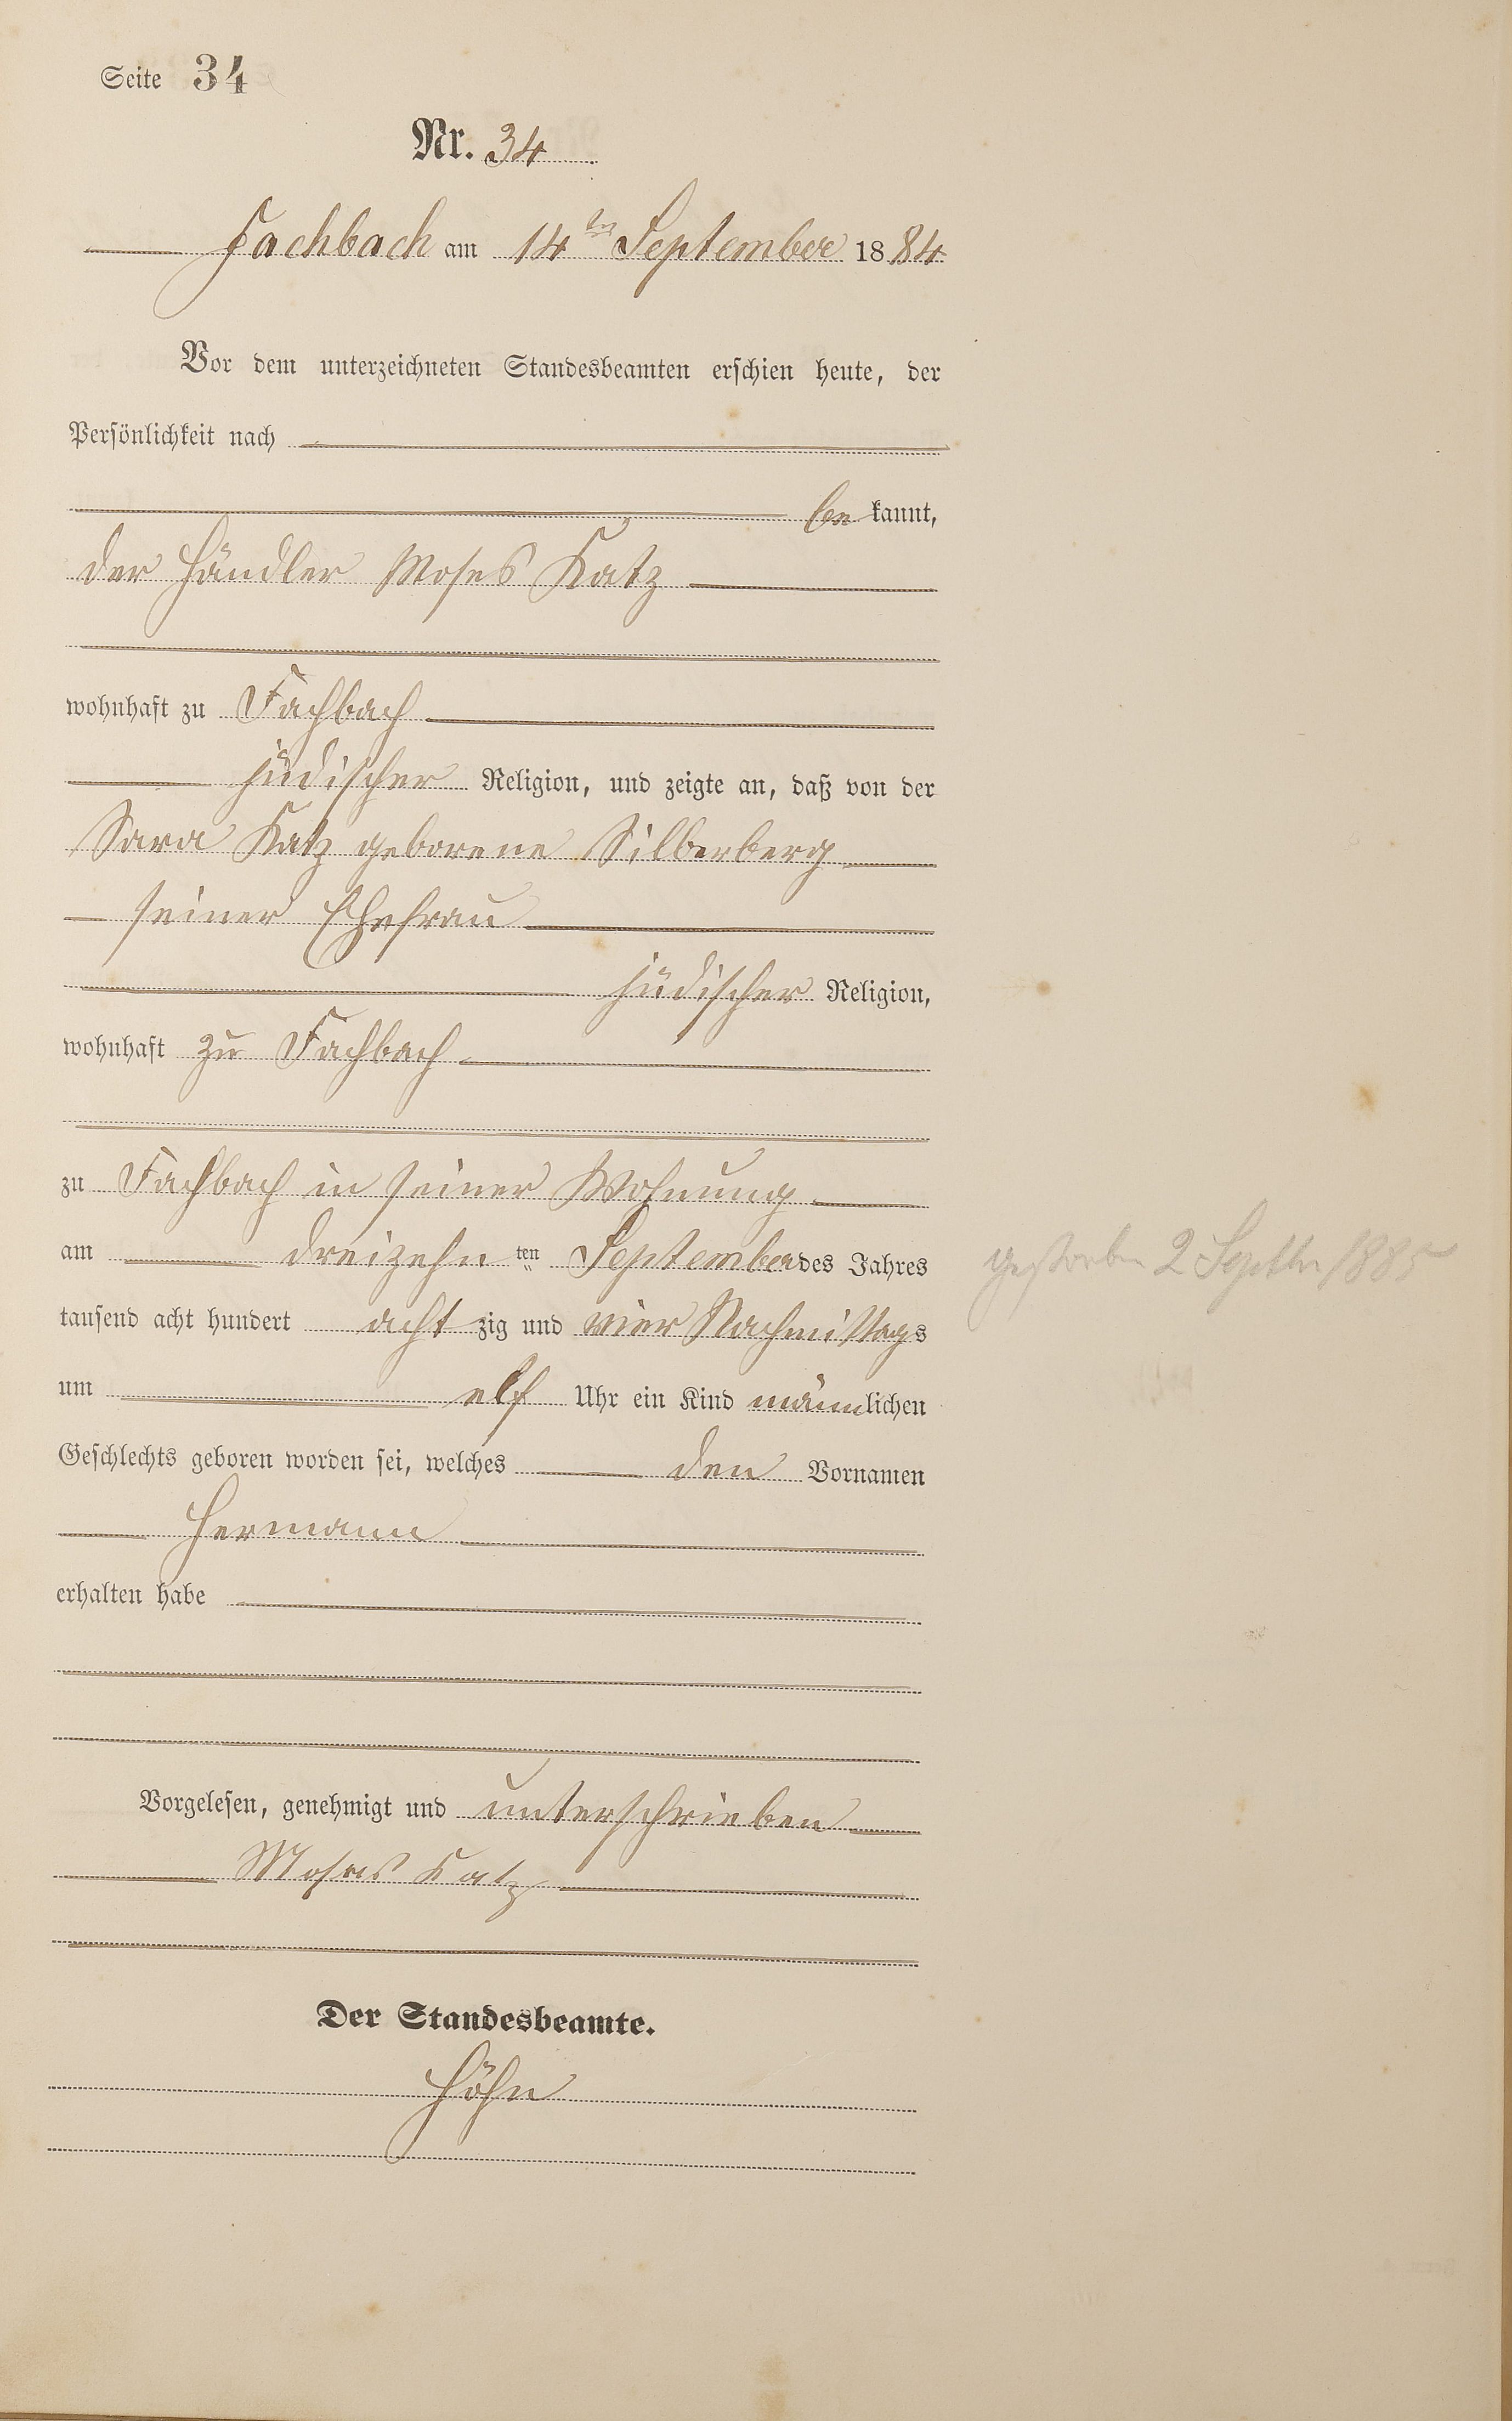 Seite 34
Nr. 34
Fachbach am 14ten September 1884
Vor dem unterzeichneten Standesbeamten erschien heute, der
Persönlichkeit nach
bekannt,
der Händler Moses Katz
wohnhaft zu Fachbach
jüdischer Religion, und zeigte an, daß von der
Sara Katz geborene Silberberg
seiner Ehefrau
jüdischer Religion,
wohnhaft zu Fachbach
zu Fachbach in seiner Wohnung
am dreizehnten September des Jahres
tausend acht hundert achtzig und vier Nachmittags
um elf Uhr ein Kind männlichen
Geschlechts geboren worden sei, welches den Vornamen
Hermann
erhalten habe
Vorgelesen, genehmigt und unterschrieben
Moses Katz
Der Standesbeamte.
Höhn
gestorben 2 Septbr 1885